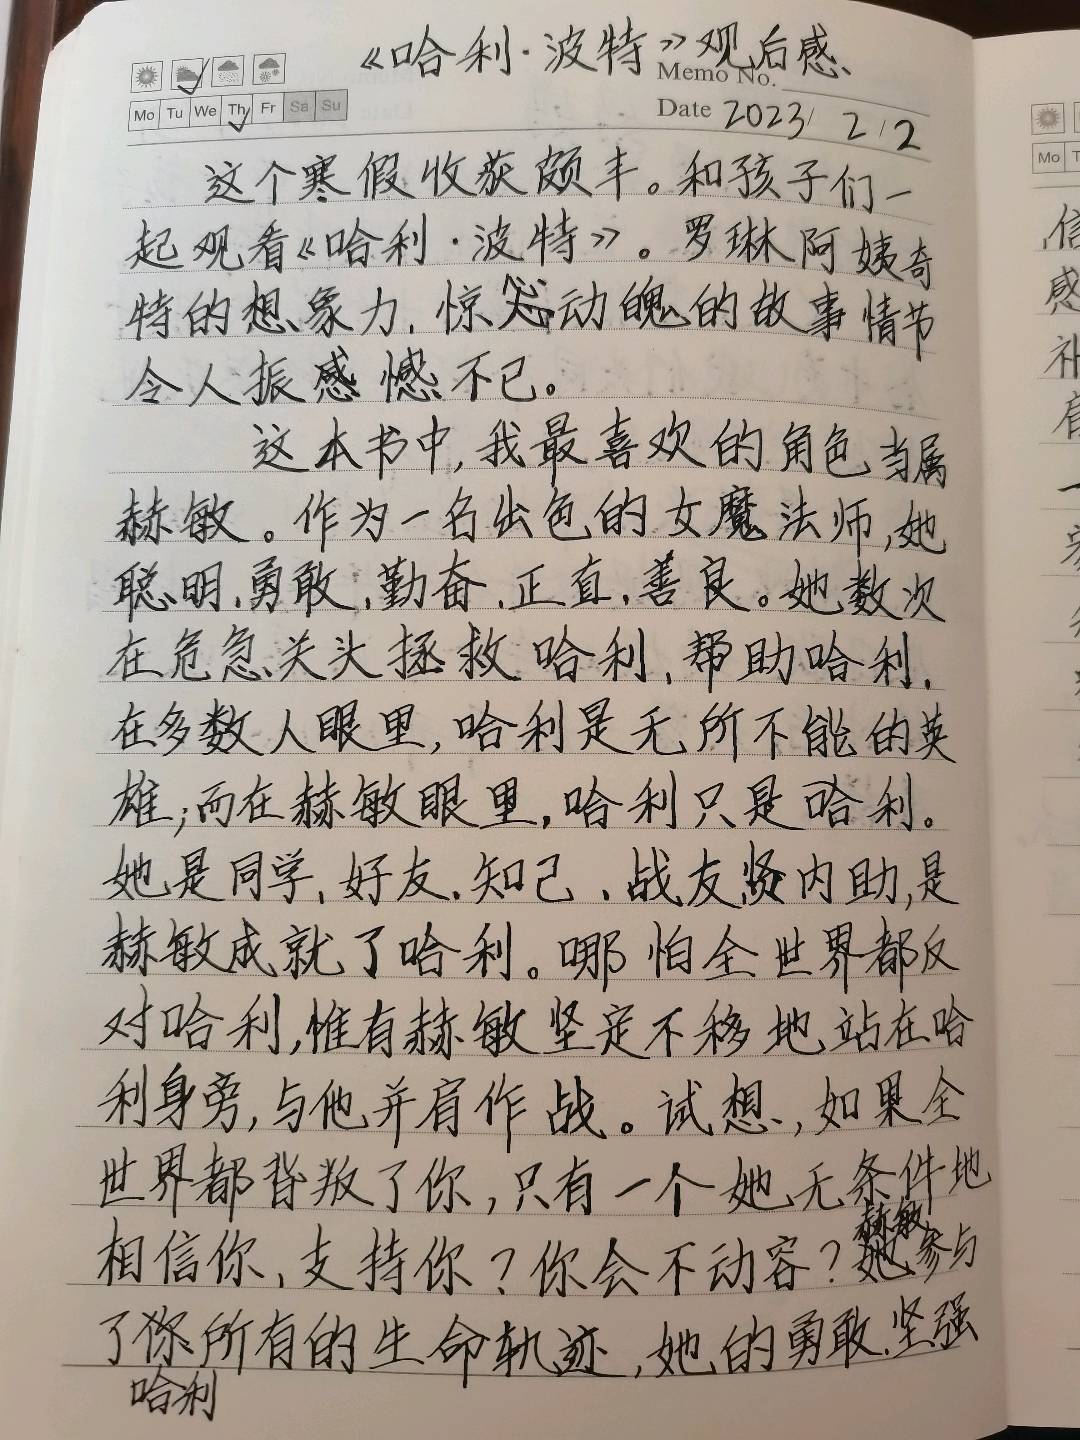 《哈利·波特》观后感
Memo No.
Mo Tu We Th Fr Sa Su
Date 2023/ 2 / 2
这个寒假收获颇丰。和孩子们一
起观看《哈利·波特》。罗琳阿姨奇
特的想象力,惊心动魄的故事情节
令人振感憾不已。
这本书中,我最喜欢的角色当属
赫敏。作为一名出色的女魔法师,她
聪明、勇敢、勤奋、正直、善良。她数次
在危急关头拯救哈利,帮助哈利,
在多数人眼里,哈利是无所不能的英
雄;而在赫敏眼里,哈利只是哈利。
她是同学、好友、知己、战友、贤内助,是
赫敏成就了哈利。哪怕全世界都反
对哈利,惟有赫敏坚定不移地站在哈
利身旁,与他并肩作战。试想,如果全
世界都背叛了你,只有一个她无条件地
赫敏
相信你、支持你?你会不动容?她参与
了你所有的生命轨迹,她的勇敢、坚强
哈利
Mo T
信
感
补
肩
一